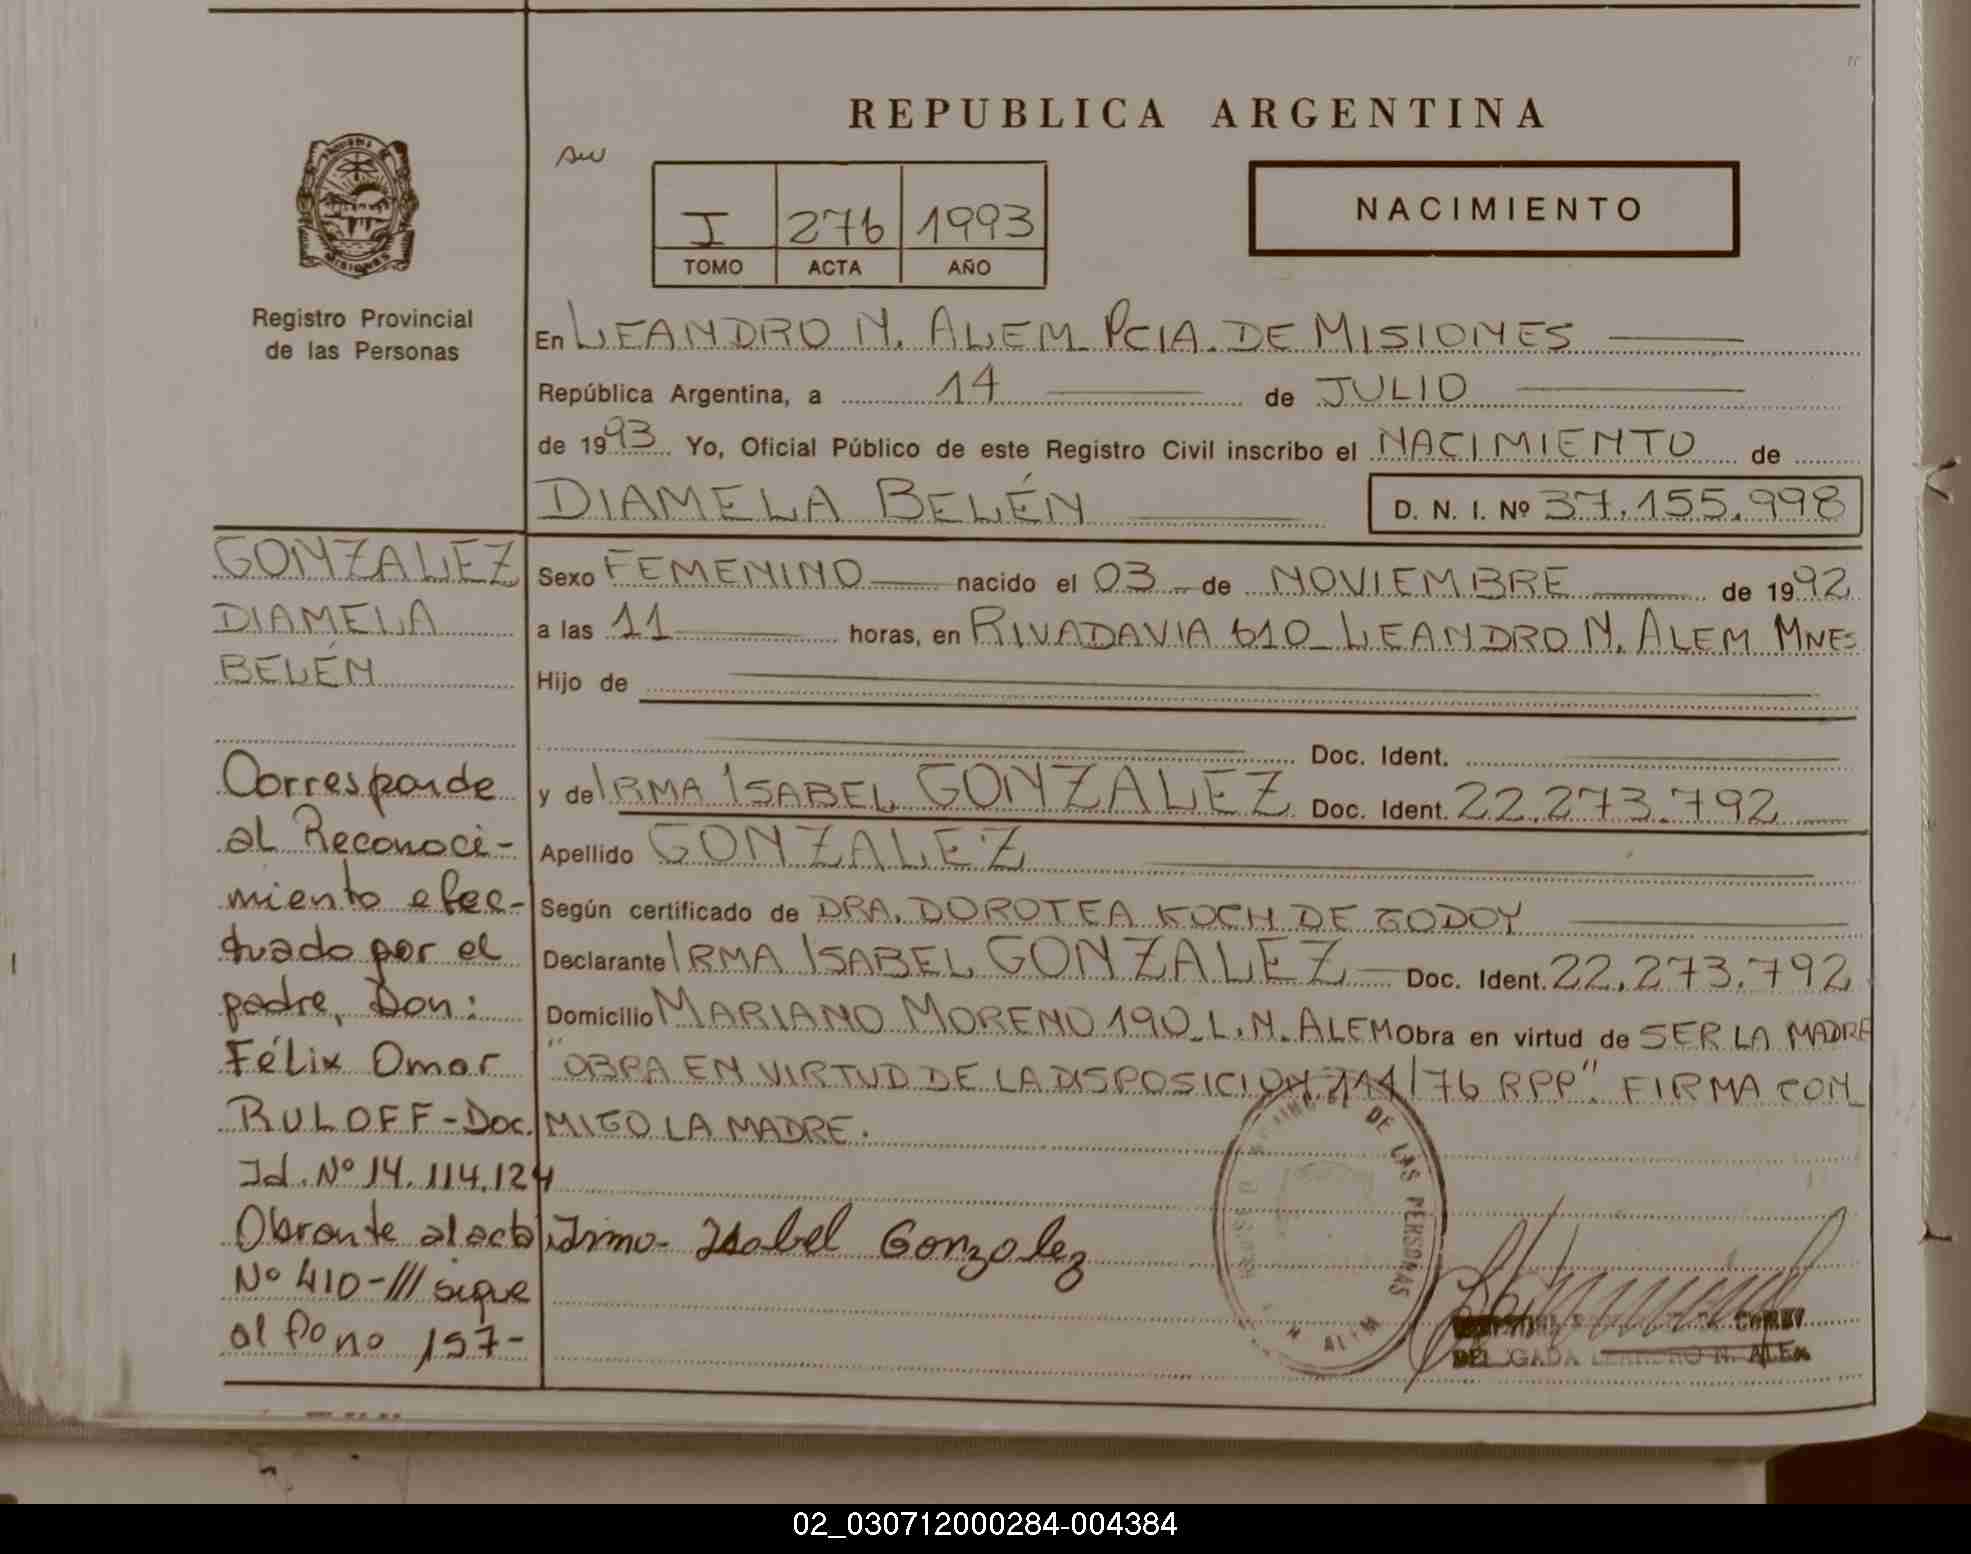 REPUBLICA ARGENTINA
I 276 1993
TOMO ACTA AÑO
NACIMIENTO
MISIONES
Registro Provincial
de las Personas
En LEANDRO N. ALEM PCIA. DE MISIONES
República Argentina, a 14 de JULIO
de 1993 Yo, Oficial Público de este Registro Civil inscribo el NACIMIENTO de
DIAMELA BELÉN D. N. I. Nº 37.155.998
GONZALEZ
DIAMELA
BELÉN
Sexo FEMENINO nacido el 03 de NOVIEMBRE de 1992
a las 11 horas, en RIVADAVIA 610 LEANDRO N. ALEM MNES
Hijo de
Doc. Ident.
y de IRMA ISABEL GONZALEZ Doc. Ident. 22.273.792
Apellido GONZALEZ
Según certificado de DRA. DOROTEA KOCH DE GODOY
Declarante IRMA ISABEL GONZALEZ Doc. Ident. 22.273.792
Domicilio MARIANO MORENO 190 L.N. ALEM Obra en virtud de SER LA MADRE
"OBRA EN VIRTUD DE LA DISPOSICION 111/76 RPP". FIRMA CON
MIGO LA MADRE.
Corresponde
al Reconoci-
miento efec-
tuado por el
padre, Don:
Félix Omar
RULOFF-Doc.
Id. Nº 14.114.124
Obrante al acta
Nº 410-III sigue
al fono 157-
Irma Isabel Gonzalez
DE LAS PERSONAS
N ALEM
LEANDRO N. ALEM
02_030712000284-004384